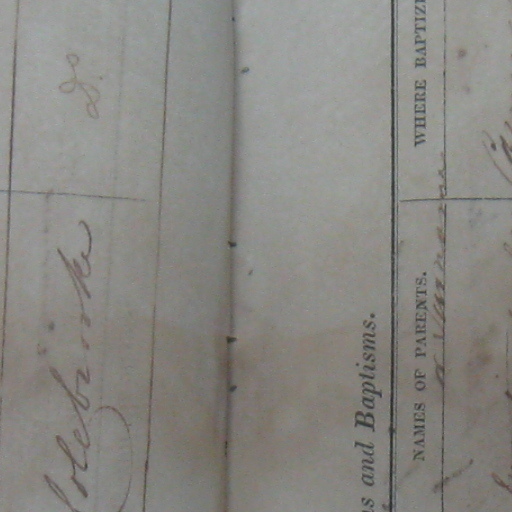 Colebrooke Do.
ns and Baptisms.
NAMES OF PARENTS. WHERE BAPTIZE
or Surname